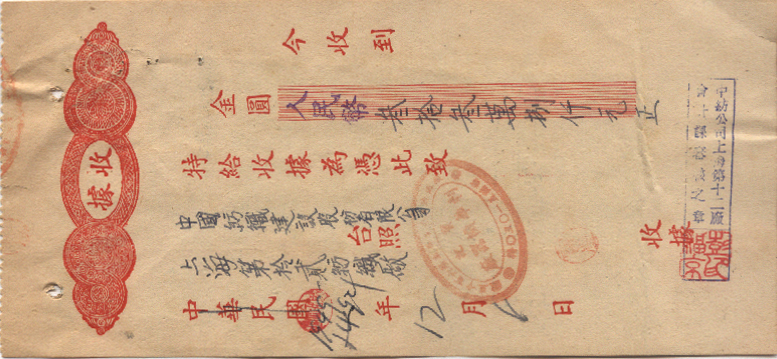 收據
今收到
金圓 人民幣 叁拾叁萬捌仟元正
特給收據為憑此致
中國紡織建設股份有限公司 台照
上海第拾貳紡織廠
中華民國 年 12 月 日
收據
中紡公司上海第十二廠